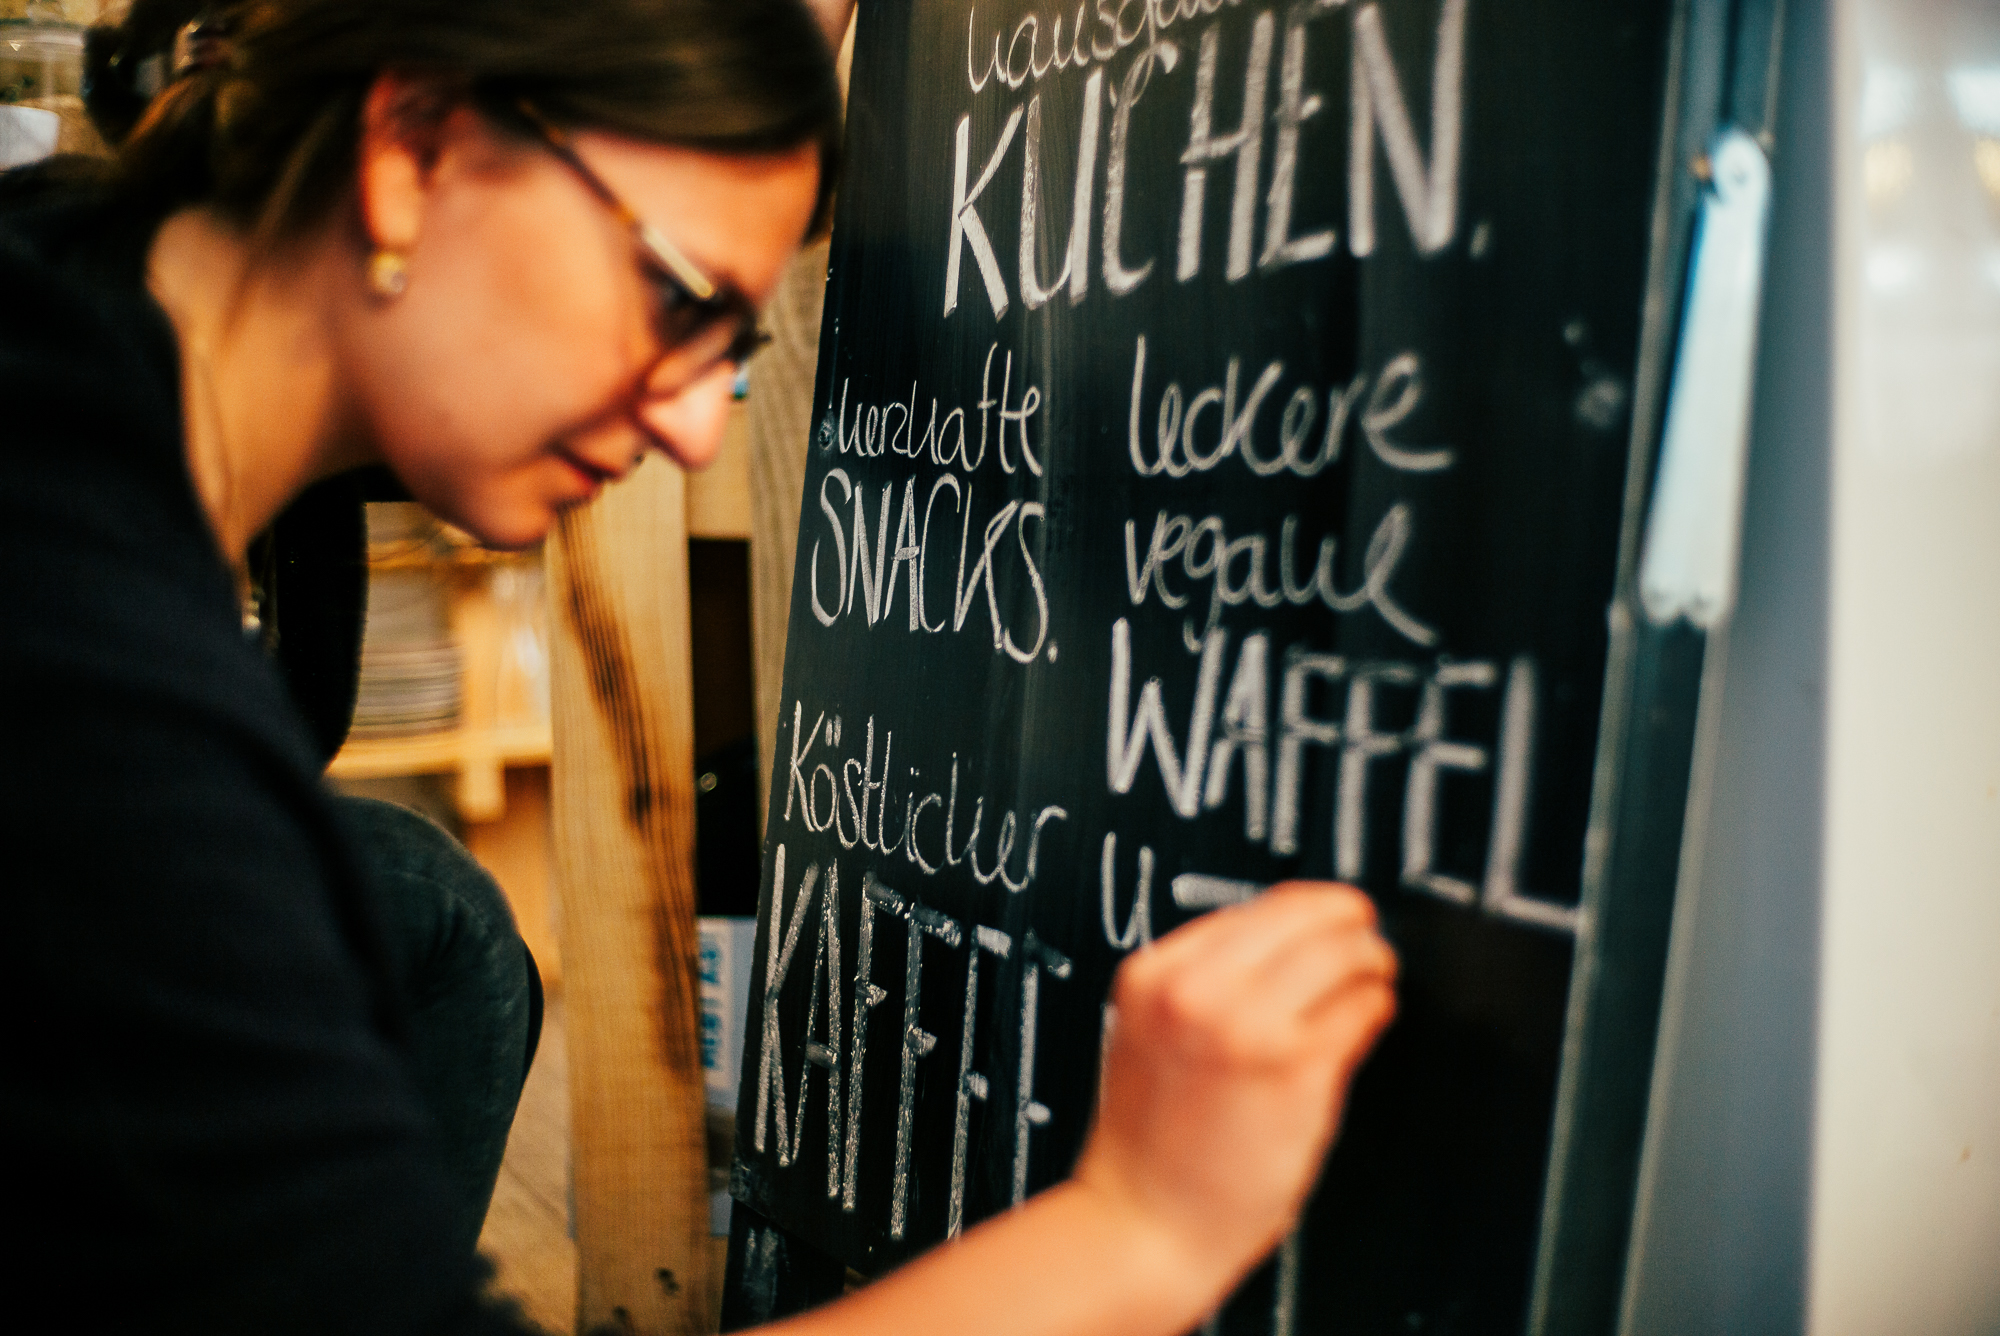 KUCHEN.
herzhafte
SNACKS.
Köstlicher
KAFFEE
leckere
vegane
WAFFEL